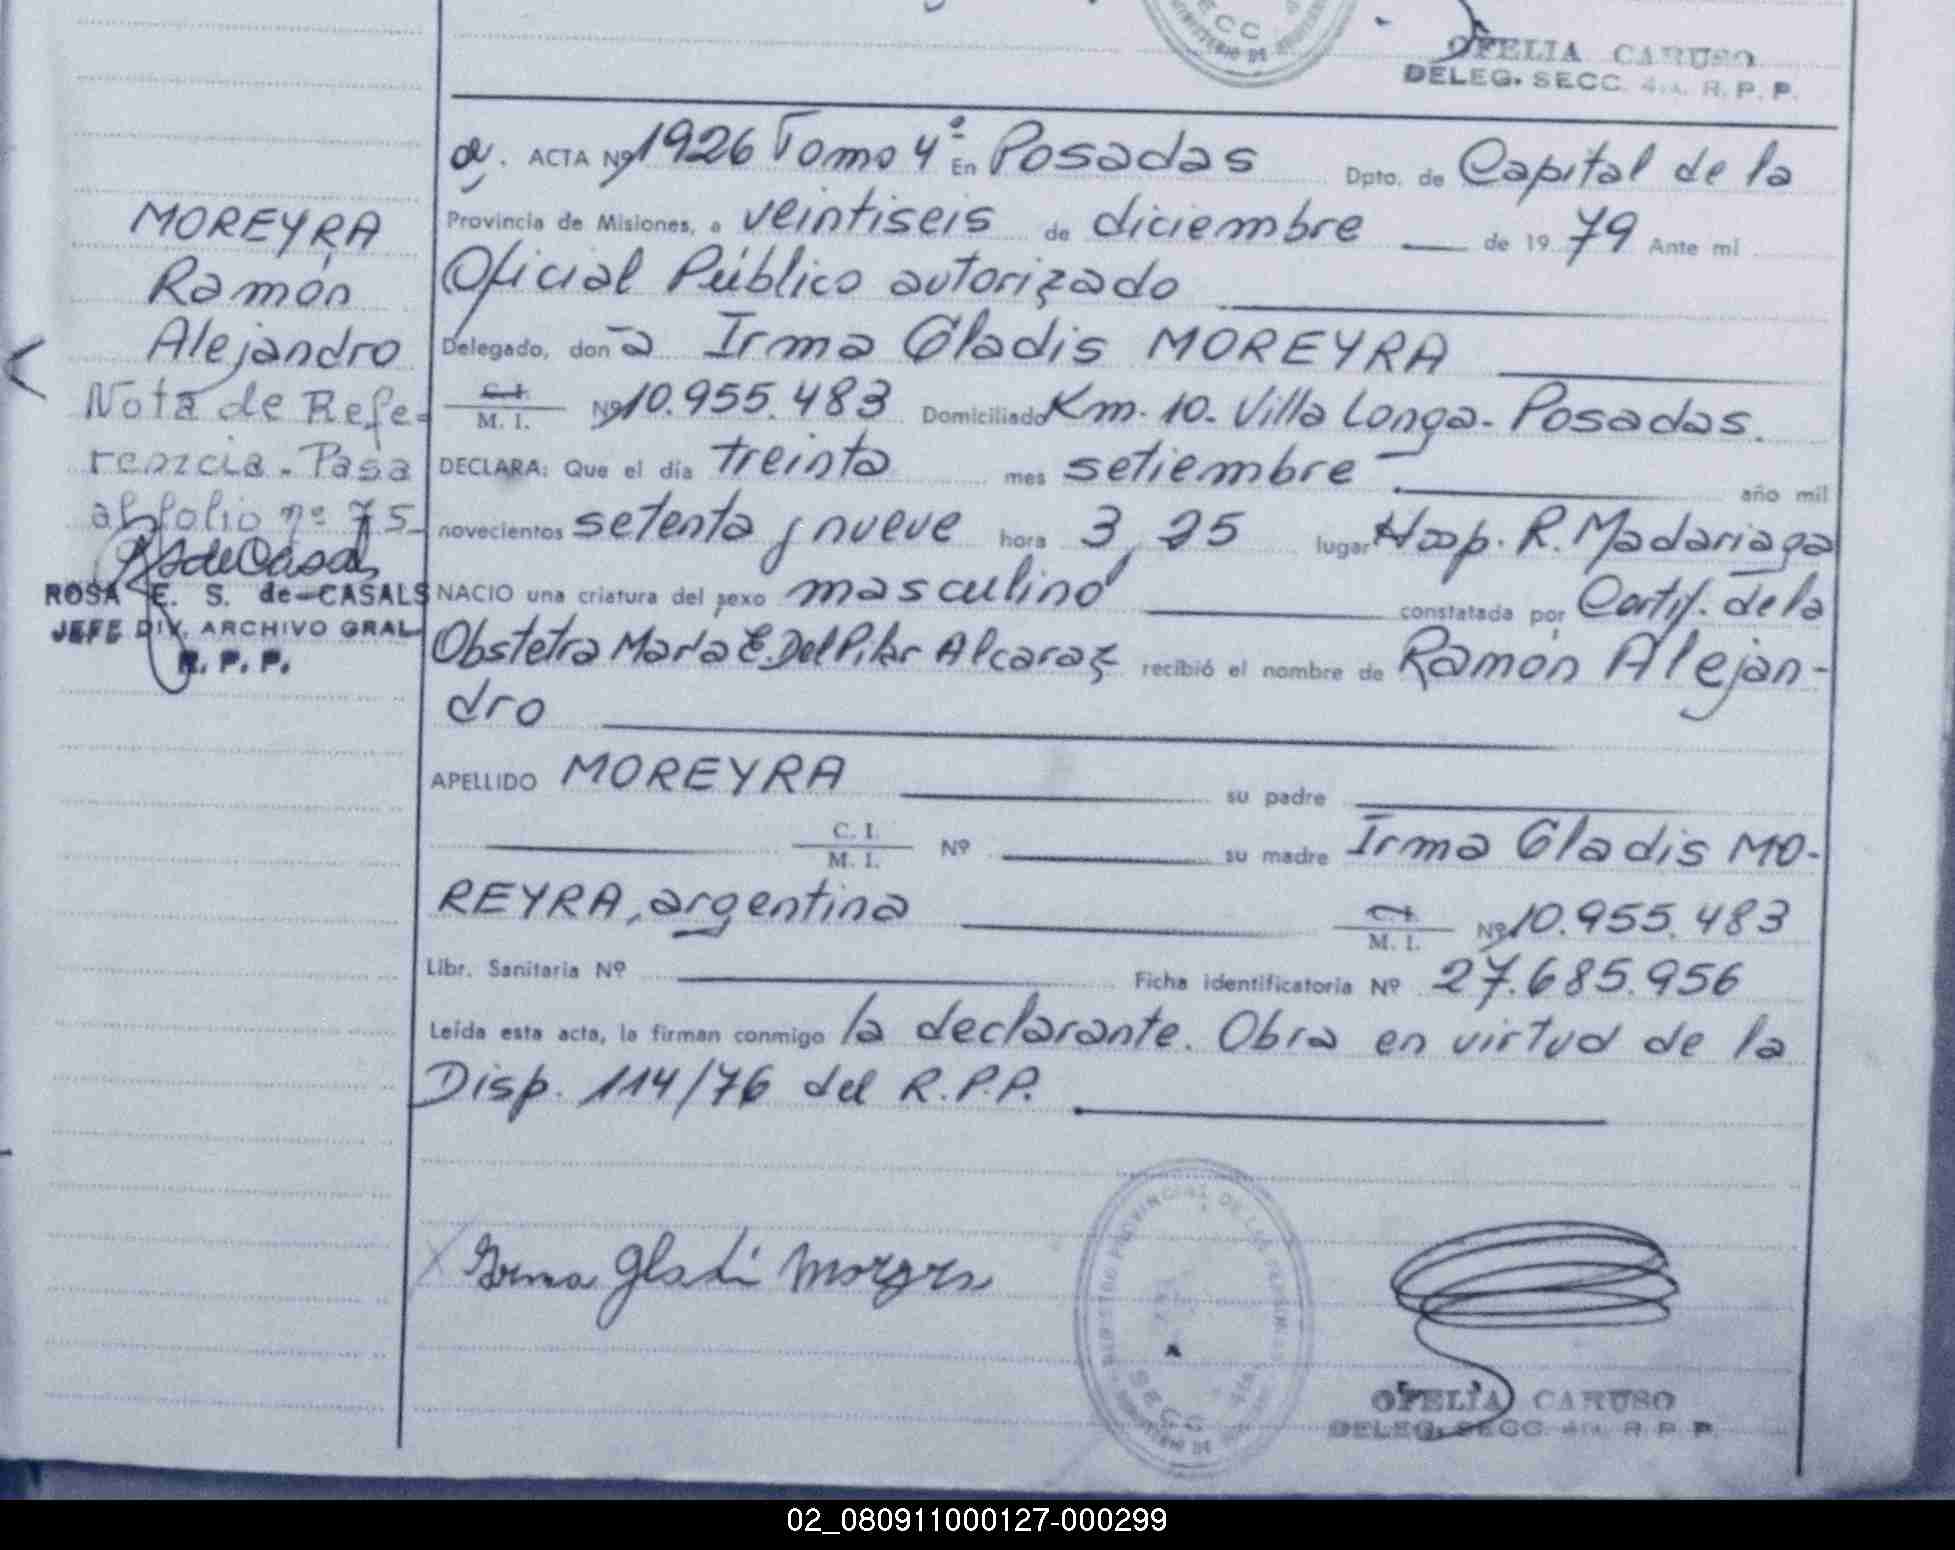 OFELIA CARUSO
DELEG. SECC. 4ta. R. P. P.
ACTA Nº 1926 Tomo 4º En Posadas Dpto. de Capital de la
Provincia de Misiones, a veintiseis de diciembre de 1979 Ante mi
Oficial Público autorizado
Delegado, don a Irma Gladis MOREYRA
C. I.
M. I. Nº 10.955.483 Domiciliado Km. 10. Villa Longa - Posadas.
DECLARA: Que el día treinta mes setiembre año mil
novecientos setenta y nueve hora 3,25 lugar Hosp. R. Madariaga
NACIO una criatura del sexo masculino constatada por Certif. de la
Obstetra María E. Del Pilar Alcaraz recibió el nombre de Ramón Alejan-
dro
APELLIDO MOREYRA su padre
C. I.
M. I. Nº su madre Irma Gladis MO-
REYRA, argentina C. I.
M. I. Nº 10.955.483
Libr. Sanitaria Nº Ficha identificatoria Nº 27.685.956
Leída esta acta, la firman conmigo la declarante. Obra en virtud de la
Disp. 114/76 del R.P.P.
MOREYRA
Ramón
Alejandro
Nota de Refe-
rencia. Pasa
al folio nº 75
ROSA E. S. de CASALS
JEFE DIV. ARCHIVO GRAL
R. P. P.
Irma Gladi Moreyra
REGISTRO PROVINCIAL DE LAS PERSONAS
SECC 4ta
OFELIA CARUSO
DELEG. SECC. 4ta. R. P. P.
02_080911000127-000299